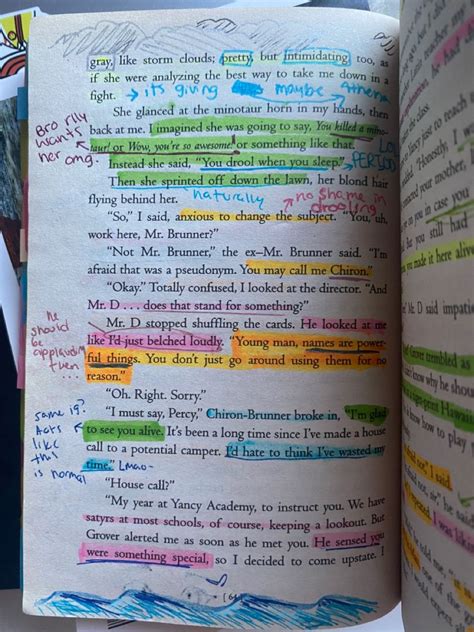 gray, like storm clouds; pretty, but intimidating, too, as
if she were analyzing the best way to take me down in a
fight. → its giving maybe Athena
She glanced at the minotaur horn in my hands, then
Bro rlly wants her omg.
back at me. I imagined she was going to say, You killed a mino-
taur! or Wow, you're so awesome! or something like that.
Instead she said, "You drool when you sleep." PERIOD
Then she sprinted off down the lawn, her blond hair
flying behind her. naturally → no shame in drooling
"So," I said, anxious to change the subject. "You, uh,
work here, Mr. Brunner?"
"Not Mr. Brunner," the ex–Mr. Brunner said. "I'm
afraid that was a pseudonym. You may call me Chiron."
"Okay." Totally confused, I looked at the director. "And
Mr. D . . . does that stand for something?"
Mr. D stopped shuffling the cards. He looked at me
he should be applauding then ...
like I'd just belched loudly. "Young man, names are power-
ful things. You don't just go around using them for no
reason."
"Oh. Right. Sorry."
"I must say, Percy," Chiron-Brunner broke in, "I'm glad
same
Acts like this is normal
to see you alive. It's been a long time since I've made a house
call to a potential camper. I'd hate to think I've wasted my
time." Lmao-
"House call?"
"My year at Yancy Academy, to instruct you. We have
satyrs at most schools, of course, keeping a lookout. But
Grover alerted me as soon as he met you. He sensed you
were something special, so I decided to come upstate. I